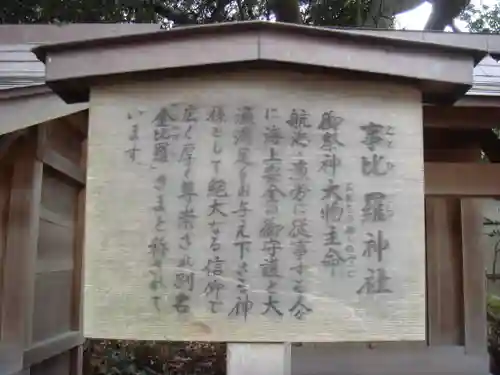 事比羅神社
ことひら
御祭神 大物主命
おおものぬしのみこと
航海・漁労に従事する人
に海上安全の御守護と大
漁満足をお与え下さる神
様として絶大なる信仰で
広く厚く尊崇され別名
「金比羅」さまと称されて
います。